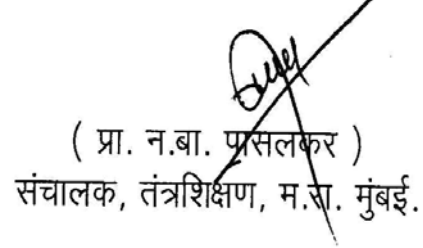 ( प्रा. न.बा. पासलकर )
संचालक, तंत्रशिक्षण, म.रा. मुंबई.